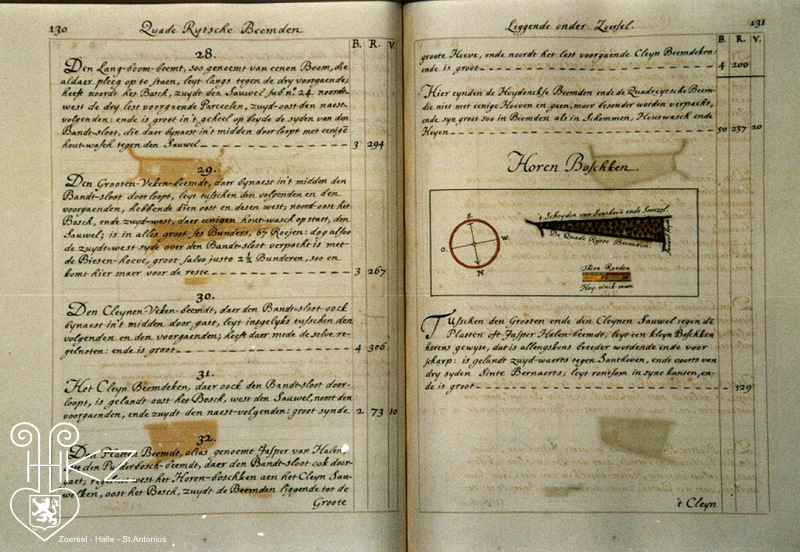 130 Quade Rytsche Beemden
B. R. V.
28.
Den Lang-boom-beemt, soo genoemt van eenen Boom, die
aldaer pleeg op te staen, leyt langs tegen de dry voorgaende;
heeft noordt het Bosch, zuydt den Sauwel, sub nº. 24. noordt-
west de dry lest voorgaende Parceelen, zuyd-oost den naest-
volgenden: ende is groot in't geheel op beyde de syden van den
Bandt-sloot, die daer bynaest in't midden door loopt met
hout-wasch tegen den Sauwel 3 294
29.
Den Grooten-Veken-beemdt, daer bynaest in't midden den
Bandt-sloot door loopt, leyt tusschen den volgenden en den
voorgaenden, hebbende dien oost en desen west; noord-oost het
Bosch, ende zuyd-west, daer eenigen hout-wasch op staet, den
Sauwel; is in alles groot ses Bunders, 67 Roejen: dog alsoo
de zuydt-west syde over den Bandt-sloot verpacht is met
de Biesen-hoeve, groot salvo justo 2 ½ Bunderen, soo en
komt hier maer voor de reste 3 267
30.
Den Cleynen-Veken-beemdt, daer den Bandt-sloot oock
bynaest in't midden door gaet, leyt insgelyks tusschen den
volgenden en den voorgaenden; heeft daer mede de selve re-
gelnoten: ende is groot 4 306
31.
Het Cleyn Beemdeken, daer oock den Bandt-sloot door-
loopt, is gelandt oost het Bosch, west den Sauwel, noort den
voorgaenden, ende zuydt den naest-volgenden: groot synde 2 73 10
32.
Den Platten Beemdt, alias genoemt Jasper van Halen,
den Pulderbosch-beemdt, daer den Bandt-sloot ook door-
gaet; west het Horen-boschken aen het Cleyn Sau-
welken, oost het Bosch, zuydt de Beemden liggende tot de
Groote
Liggende onder Zoersel. 131
B. R. V.
groote Hoeve, ende noordt het lest voorgaende Cleyn Beemdeken:
ende is groot 4 200
Hier eynden de Heydonckse Beemden ende de Quadreytsche Beem-
die niet met eenige Hoeven en gaen, maer besonder worden verpacht,
ende syn groot soo in Beemden als in Schommen, Houtwasch ende
Heyen 50 237 20
Horen Boschken.
S.
O. W.
N.
't Scheyden van Santhove ende Zoerzel
De Quade Rytse Beemden.
Thien Roeden
Hey. einck mate.
Tusschen den Grooten ende den Cleynen Sauwel tegen de
Platten oft Jasper Halen-beemdt, leyt een kleyn Boschken
herens gewyse, dat is allengskens breeder wordende ende voor
scharp: is gelandt zuyd-waerts tegen Santhoven, ende voorts van
dry syden Sinte Bernaerts; leyt rontsom in syne kanten, en-
de is groot 129
't Cleyn
HZ
Zoersel - Halle - St.Antonius